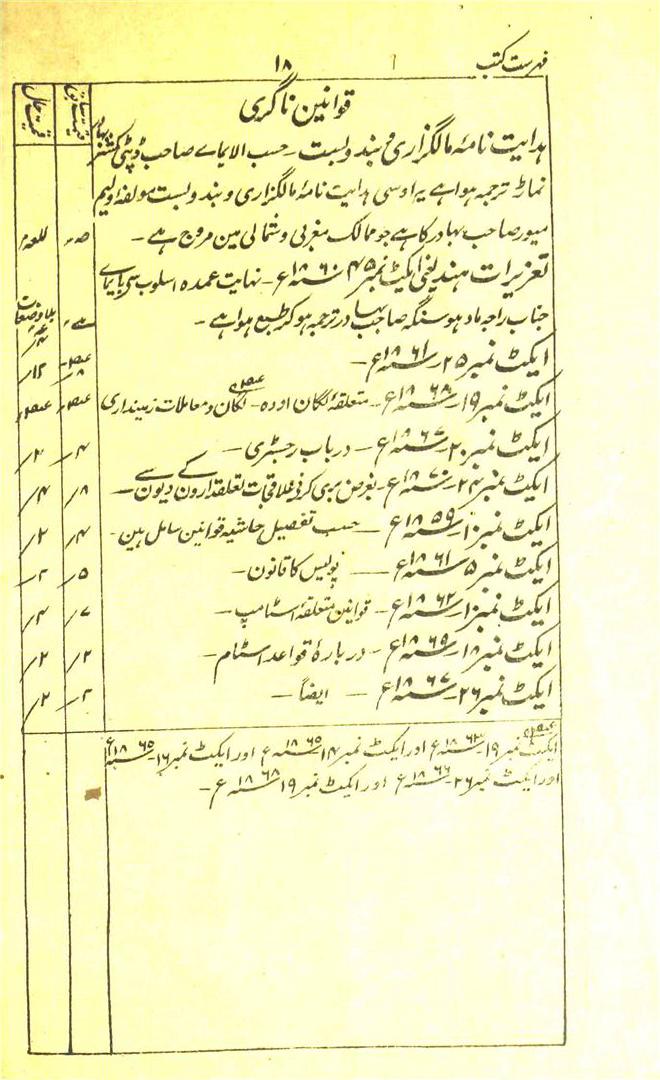 فہرست کتب ۱ ۱۸
قیمت سابق قیمت حال
قوانین ناگری
ہدایت نامہ مالگزاری مع بند و بست ۔ حسب الایماے صاحب ڈپٹی کمشنر بہادر
ترجمہ ہوا ہے یہ اوسی ہدایت نامۂ مالگزاری و بند و بست مولفہ ولیم
میور صاحب بہادر کا ہے جو ممالک مغربی و شمالی مین مروج ہے ۔
تعزیرات ہند یعنی ایکٹ نمبر ۴۵ سنہ ۱۸۶۰ ع ۔ نہایت عمدہ اسلوب سے بایماے
جناب راجہ مادہو سنگہ صاحب بہادر ترجمہ ہوکر طبع ہوا ہے ۔
ایکٹ نمبر ۲۵ ۔ سنہ ۱۸۶۱ ع ۔
ایکٹ نمبر ۱۹ ۔ سنہ ۱۸۶۸ ع ۔ متعلقۂ لگان اودہ ۔ لگان و معاملات زمینداری
ایکٹ نمبر ۲۰ ۔ سنہ ۱۸۶۷ ع ۔ درباب رجسٹری ۔ ۴/ ۲/
ایکٹ نمبر ۲۴ ۔ سنہ ۱۸۷۰ ع ۔ بغرض بری کرنے علاقجات تعلقدارون کے دیون سے ۔ ۸/ ۴/
ایکٹ نمبر ۱۰ ۔ سنہ ۱۸۵۹ ع ۔ حسب تفصیل حاشیہ قوانین شامل ہین ۔ ۴/ ۲/
ایکٹ نمبر ۵ سنہ ۱۸۶۱ ع ۔ پولیس کا قانون ۔ ۵/ ۲/
ایکٹ نمبر ۱۰ ۔ سنہ ۱۸۶۲ ع ۔ قوانین متعلقۂ اسٹامپ ۔ ۷/ ۴/
ایکٹ نمبر ۱۸ ۔ سنہ ۱۸۶۹ ع ۔ دربارۂ قواعد اسٹام ۔ ۲/ ۲/
ایکٹ نمبر ۲۶ ۔ سنہ ۱۸۶۷ ع ۔ ایضاً ۔ ۲/ ۲/
ایکٹ نمبر ۱۹ ۔ سنہ ۱۸۶۳ ع اور ایکٹ نمبر ۱۴ سنہ ۱۸۶۵ ع اور ایکٹ نمبر ۱۶ ۔ سنہ ۱۸۶۵ ع
اور ایکٹ نمبر ۲۶ ۔ سنہ ۱۸۶۶ ع اور ایکٹ نمبر ۱۹ سنہ ۱۸۶۸ ع ۔